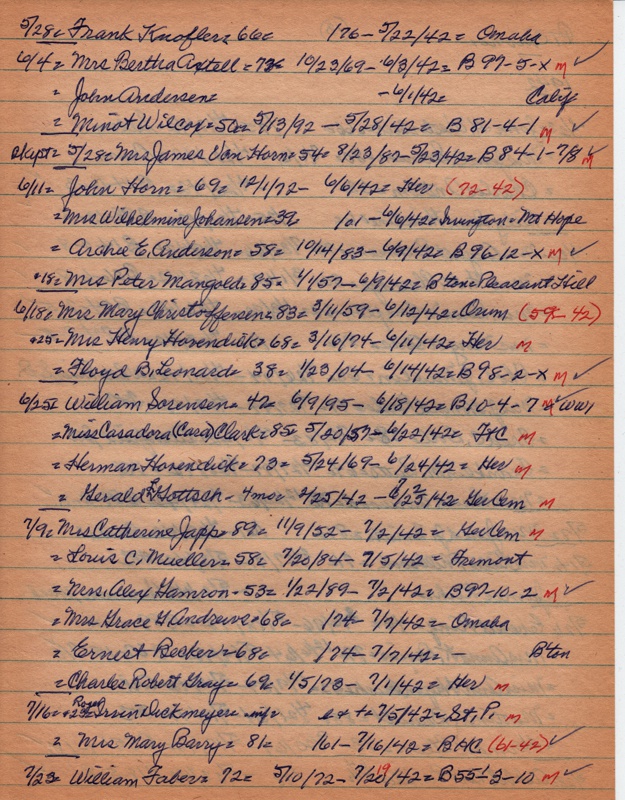 5/28= Frank Knofler= 66= 1/76- 5/22/42= Omaha
6/4= Mrs Bertha Axtell= 72 10/23/69- 6/3/42= B 97-5-X m ✓
= John Andersen= - 6/1/42= Calif
= Minot Wilcox= 50= 5/13/92 - 5/28/42= B 81-4-1 m ✓
5/28= Mrs James Van Horn= 54= 8/23/87- 5/23/42= B 84-1-7/8 m ✓
6/11= John Horn= 69= 12/1/72- 6/6/42= Her (72-42)
= Mrs Wilhelmine Johansen= 39 1/01 - 6/6/42= Irvington= Mt Hope
= Archie E. Anderson= 58= 10/14/83- 6/9/42= B 96-12-X m ✓
+18= Mrs Peter Mangold= 85= 4/1/57- 6/9/42= B'ton= Pleasant Hill
6/18= Mrs Mary Christoffersen= 83= 3/11/59- 6/12/42= Orum (59- 42)
+25= Mrs Henry Hovendick= 68= 3/16/74- 6/11/42= Her m
= Floyd B. Leonard= 38= 1/23/04- 6/14/42= B 98-2-X m ✓
6/25= William Sorensen= 47= 6/9/95- 6/18/42= B 10-4-7 m ✓ WW1
= Miss Casadora (Casa) Clark= 85= 5/20/57- 6/22/42= FtC m
= Herman Hovendick= 73= 5/24/69- 6/24/42= Her m
= Gerald L Gottsch- 4mo= 2/25/42 - 6/25/42 Ger Cem m
7/9= Mrs Catherine Japp= 89= 11/9/52- 7/2/42= Ger Cem m
= Louis C. Mueller= 58= 7/20/84- 7/5/42= Fremont
= Mrs. Alex Gamron= 53= 1/22/89- 7/2/42= B 97-10-2 m ✓
= Mrs Grace G. Andrews= 68= 1/74- 7/7/42= Omaha
= Ernest Becker= 68= 1/74- 7/7/42= - B'ton
= Charles Robert Gray= 69= 4/5/73- 7/1/42= Her m
7/16= +23= Roger Irvin Dickmeyer= inf= 7/5/42= St. P. m
= Mrs Mary Barry= 81= 1/61- 7/16/42= B HC (61-42) ✓
7/23= William Faber= 72= 5/10/72- 7/20/42= 19 B 55 1/2-3-10 m ✓